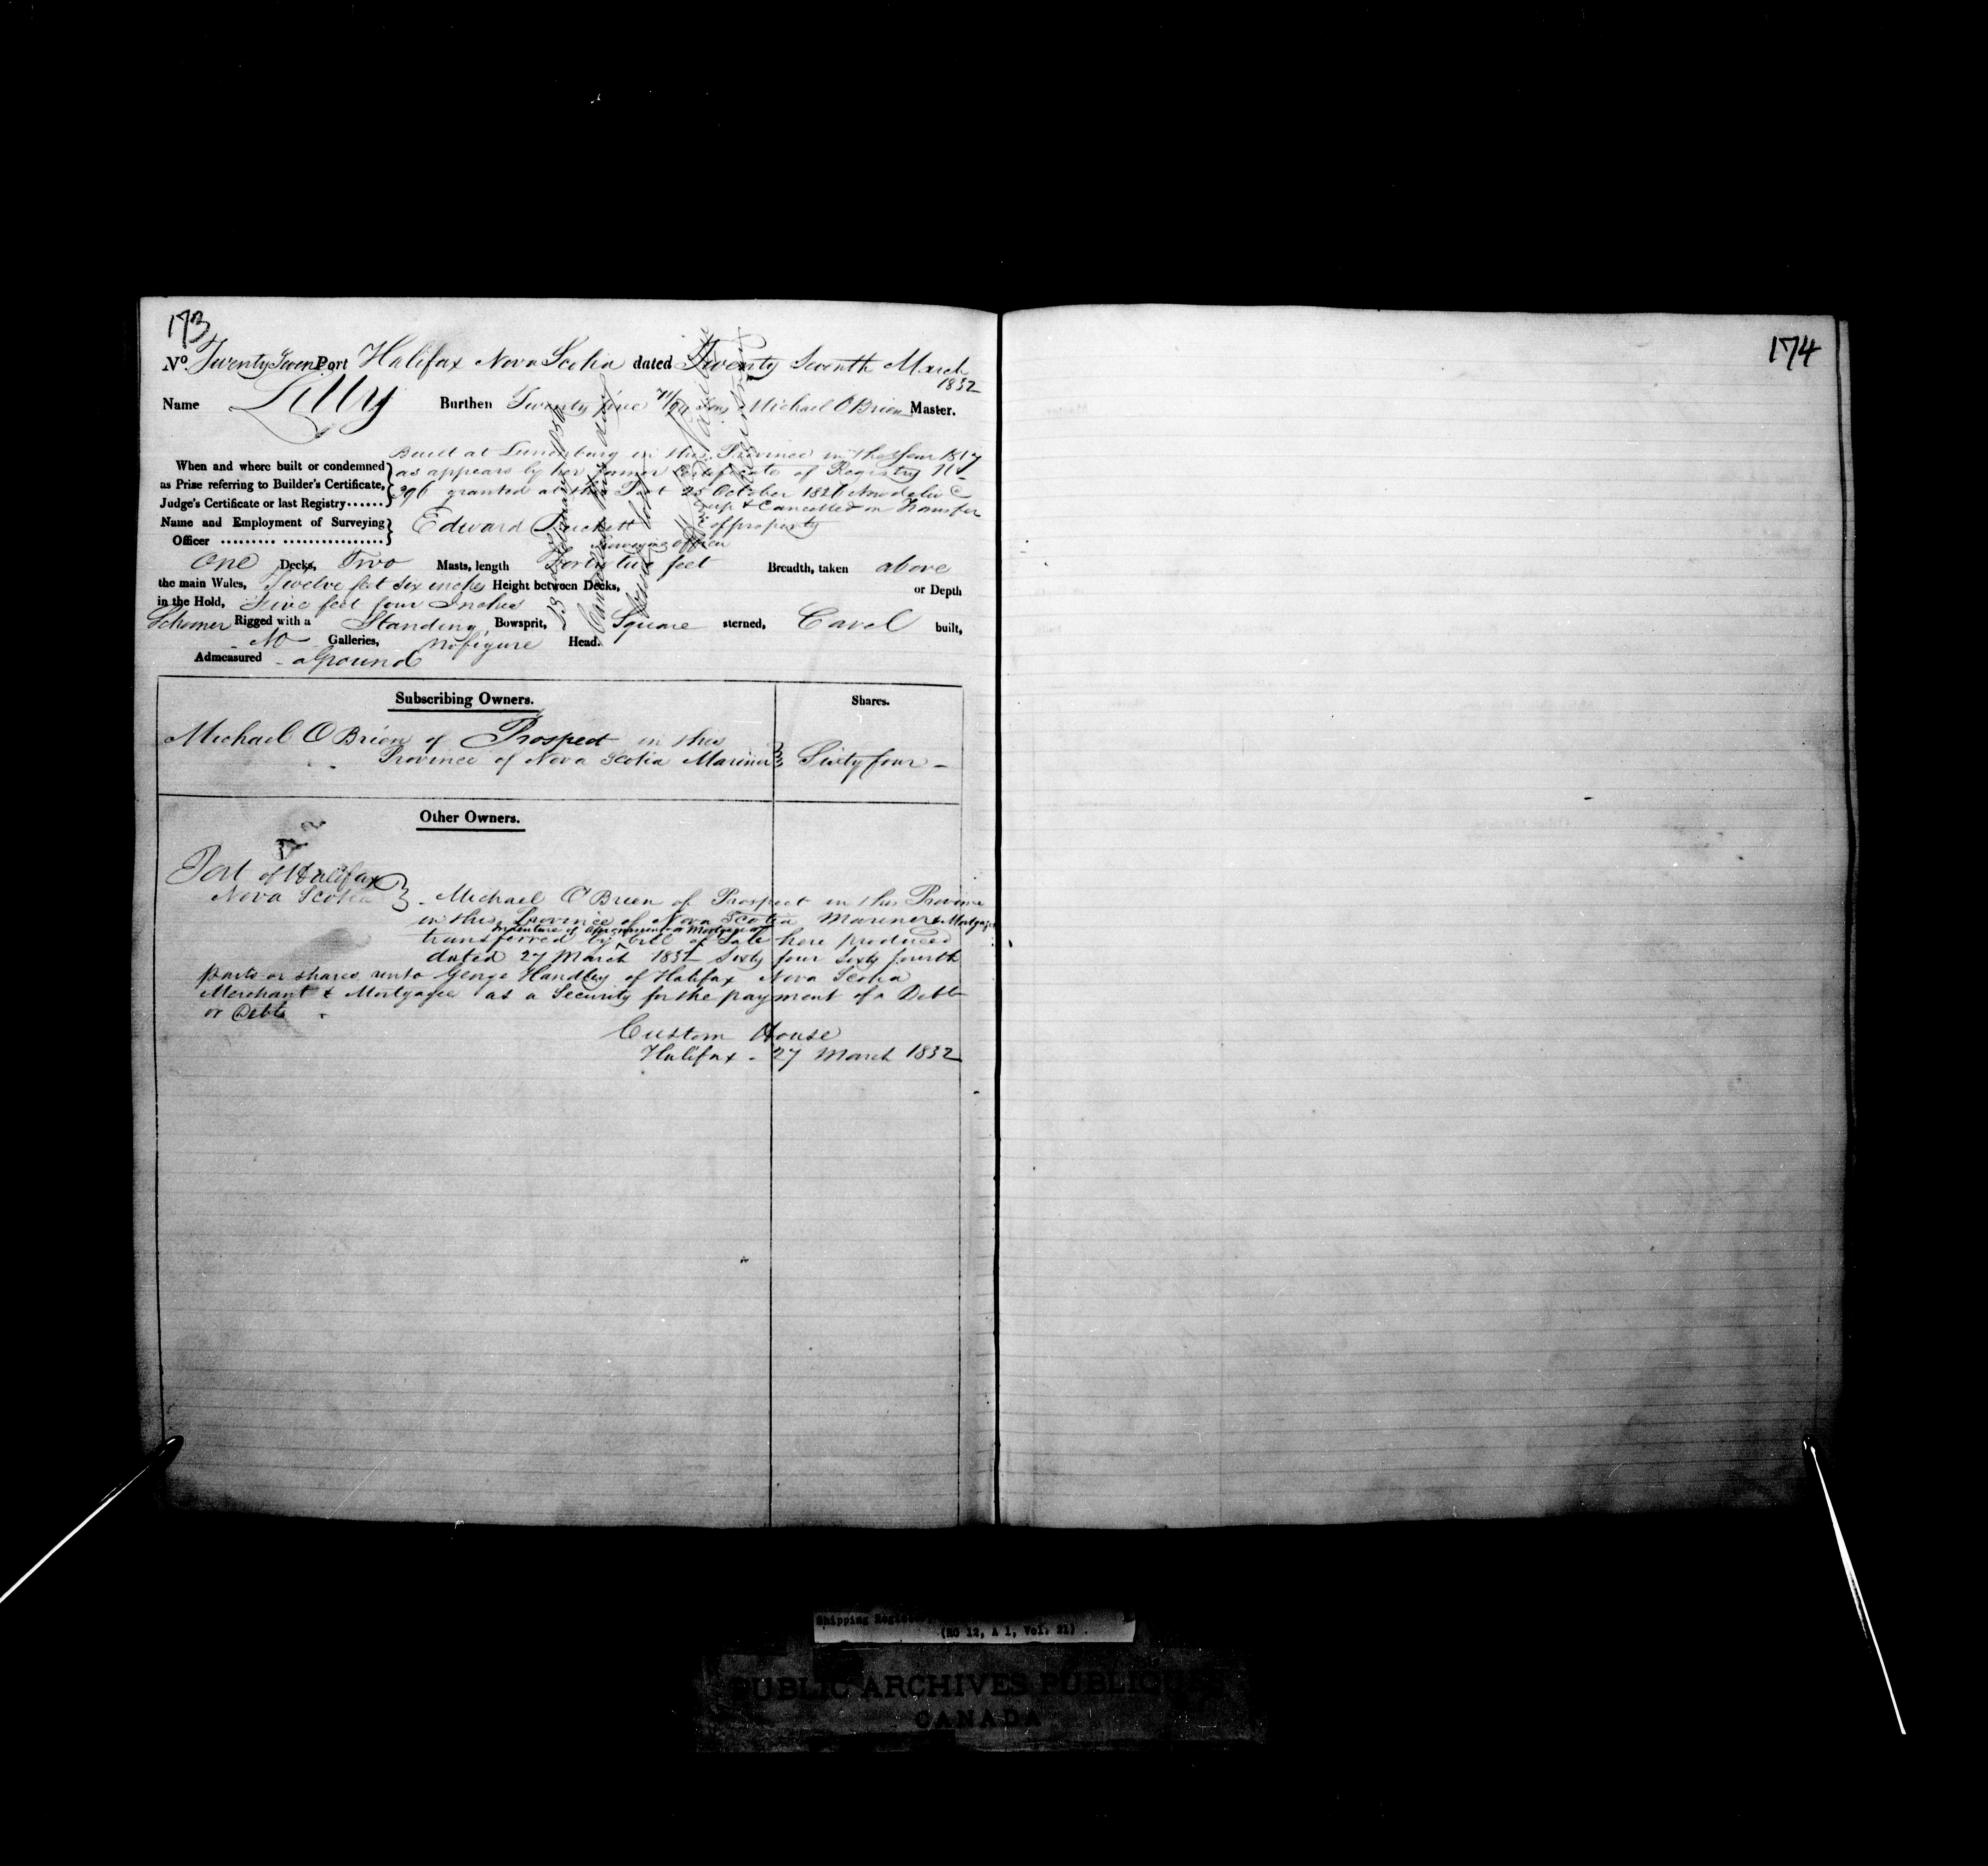 173
No. Twenty Seven Port Halifax Nova Scotia dated Twenty Seventh March
1832
Name Lilly Burthen Twenty five 71/94 Tons Michael O'Brien Master.
When and where built or condemned as Prize referring to Builder's Certificate, Judge's Certificate or last Registry......
Built at Lunenburg in this Province in the Year 1817
as appears by her former Certificate of Registry No
396 granted at this Port 25 October 1826 Now deliv
up & Cancelled on Transfer
of property
Name and Employment of Surveying Officer
Edward Puckett
Surveying officer
One Decks, Two Masts, length Forty two feet Breadth, taken above
the main Wales, Twelve feet Six inches Height between Decks, or Depth
in the Hold, Five feet four Inches
Schooner Rigged with a Standing Bowsprit, Square sterned, Carvel built,
No Galleries, no figure Head.
Admeasured aground
Cancelled this
Subscribing Owners. Shares.
Michael O Brien of Prospect in this
Province of Nova Scotia Mariner Sixty four
Other Owners.
Port of Halifax
Nova Scotia
Michael O'Brien of Prospect in this Province
in this Province of Nova Scotia Mariner & Mortgagor
transferred by bill of Sale here produced
dated 27 March 1832 Sixty four Sixty fourth
parts or shares unto George Handley of Halifax Nova Scotia
Merchant & Mortgagee as a Security for the payment of a Debt
or Debts
Custom House
Halifax - 27 March 1832
174
Shipping
(RG 12, A 1, Vol. 21)
PUBLIC ARCHIVES PUBLIQUES
CANADA